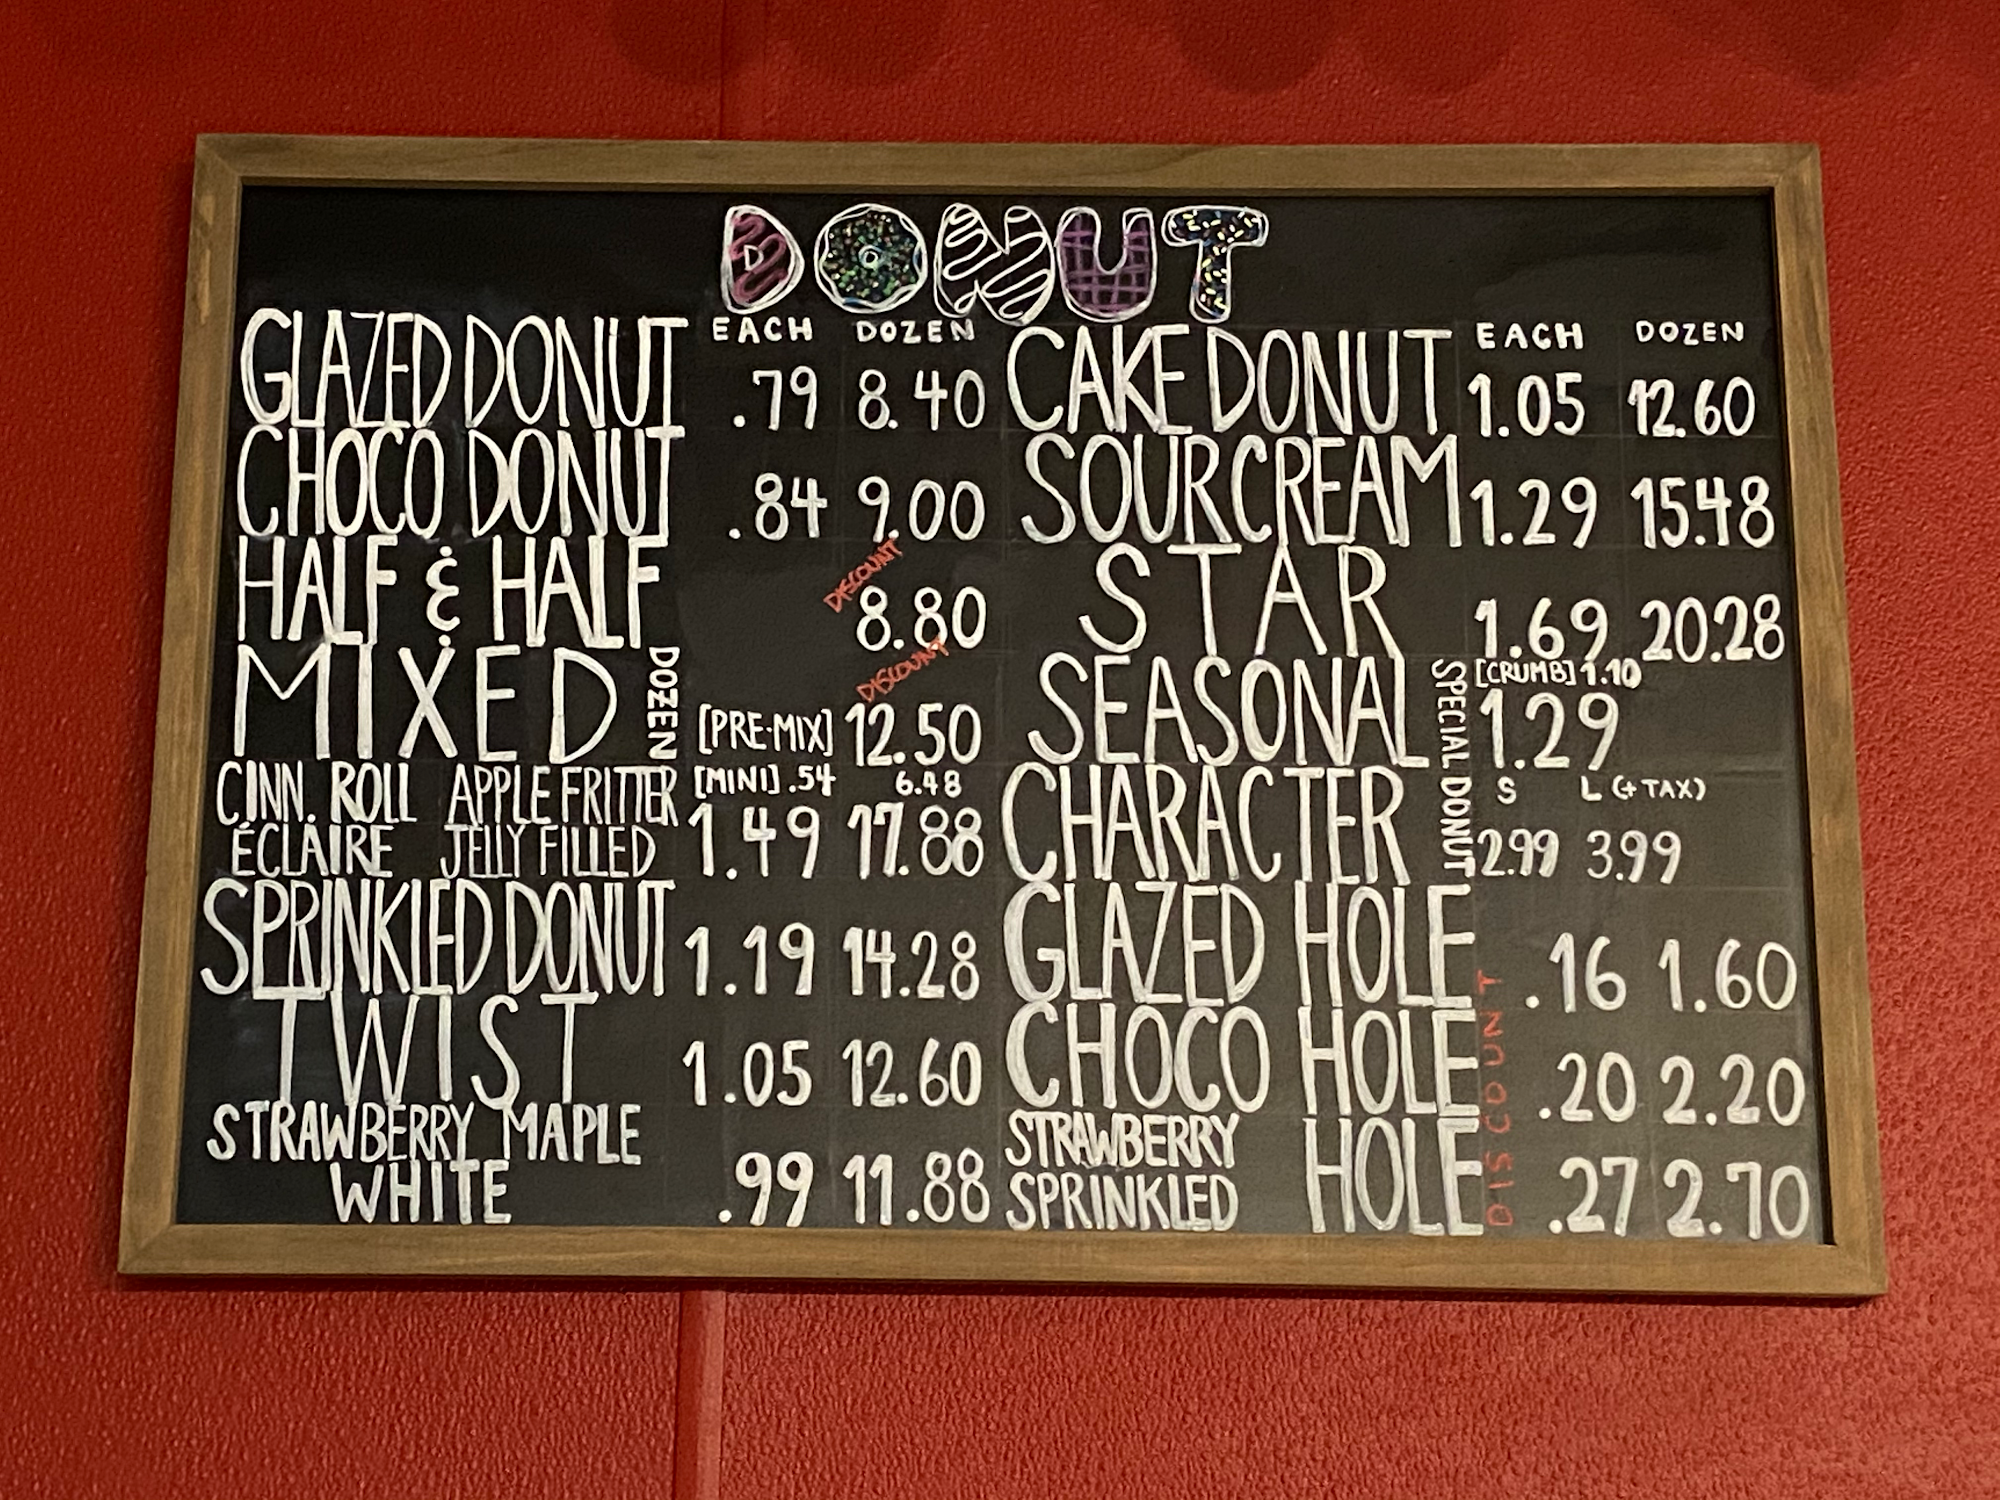 DONUT
EACH DOZEN
GLAZED DONUT .79 8.40
CHOCO DONUT .84 9.00
HALF & HALF DISCOUNT 8.80
MIXED DOZEN [PRE-MIX] DISCOUNT 12.50
CINN. ROLL APPLE FRITTER [MINI] .54 6.48
ÉCLAIRE JELLY FILLED 1.49 17.88
SPRINKLED DONUT 1.19 14.28
TWIST 1.05 12.60
STRAWBERRY MAPLE
WHITE .99 11.88
EACH DOZEN
CAKE DONUT 1.05 12.60
SOURCREAM 1.29 15.48
STAR 1.69 20.28
SPECIAL DONUT
[CRUMB] 1.10
SEASONAL 1.29
S L (+TAX)
CHARACTER 2.99 3.99
DISCOUNT
GLAZED HOLE .16 1.60
CHOCO HOLE .20 2.20
STRAWBERRY
SPRINKLED HOLE .27 2.70